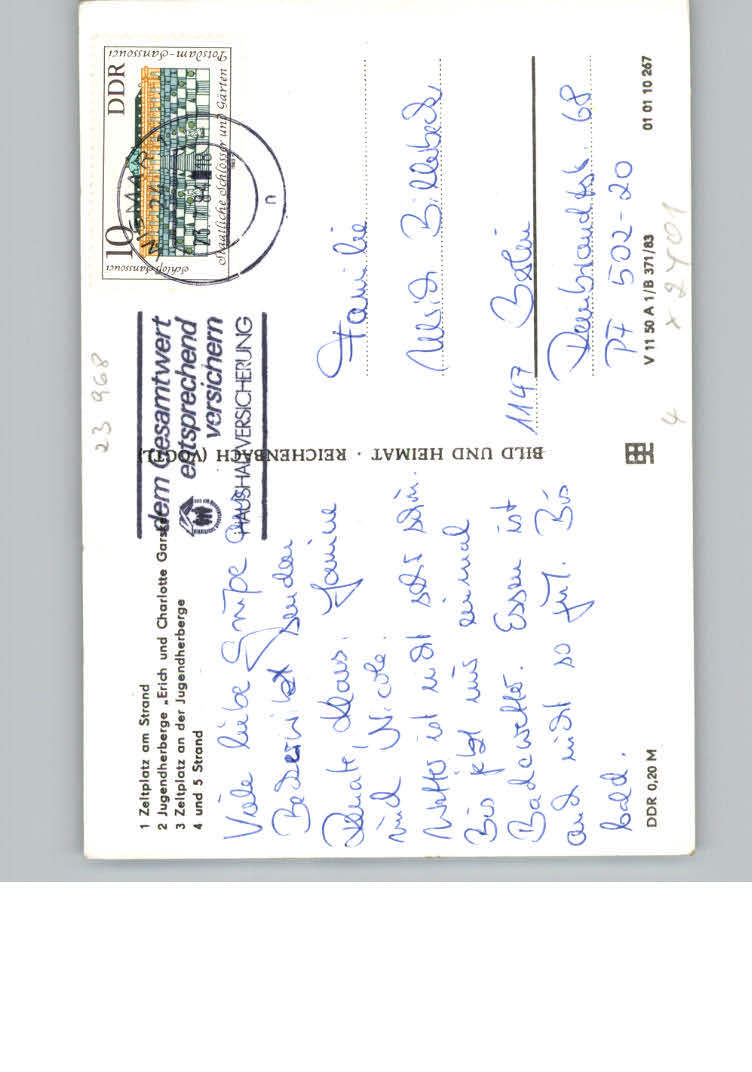 1 Zeltplatz am Strand
2 Jugendherberge „Erich und Charlotte Garske
3 Zeltplatz an der Jugendherberge
4 und 5 Strand
Viele liebe Grüße aus
senden
Renate, Klaus, Janine
und Nicole.
Wetter ist nicht sehr schön.
Bis jetzt nur einmal
Badewetter. Essen ist
auch nicht so gut. Bis
bald.
DDR 0,20 M
BILD UND HEIMAT · REICHENBACH (VOGTL.)
dem Gesamtwert
entsprechend
versichern
HAUSHALTVERSICHERUNG
DDR
10
Potsdam-Sanssouci
Schloß Sanssouci
Staatliche Schlösser und Gärten
WISMAR
n
Familie
Ulrich Billebeck
1147 Berlin
Rembrandtstr. 68
PF 502-20
V 11 50 A 1/B 371/83
01 01 10 267
23 968
4
x 2401